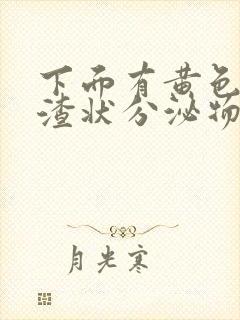 下面有黄色
渣状分泌物
月光寒